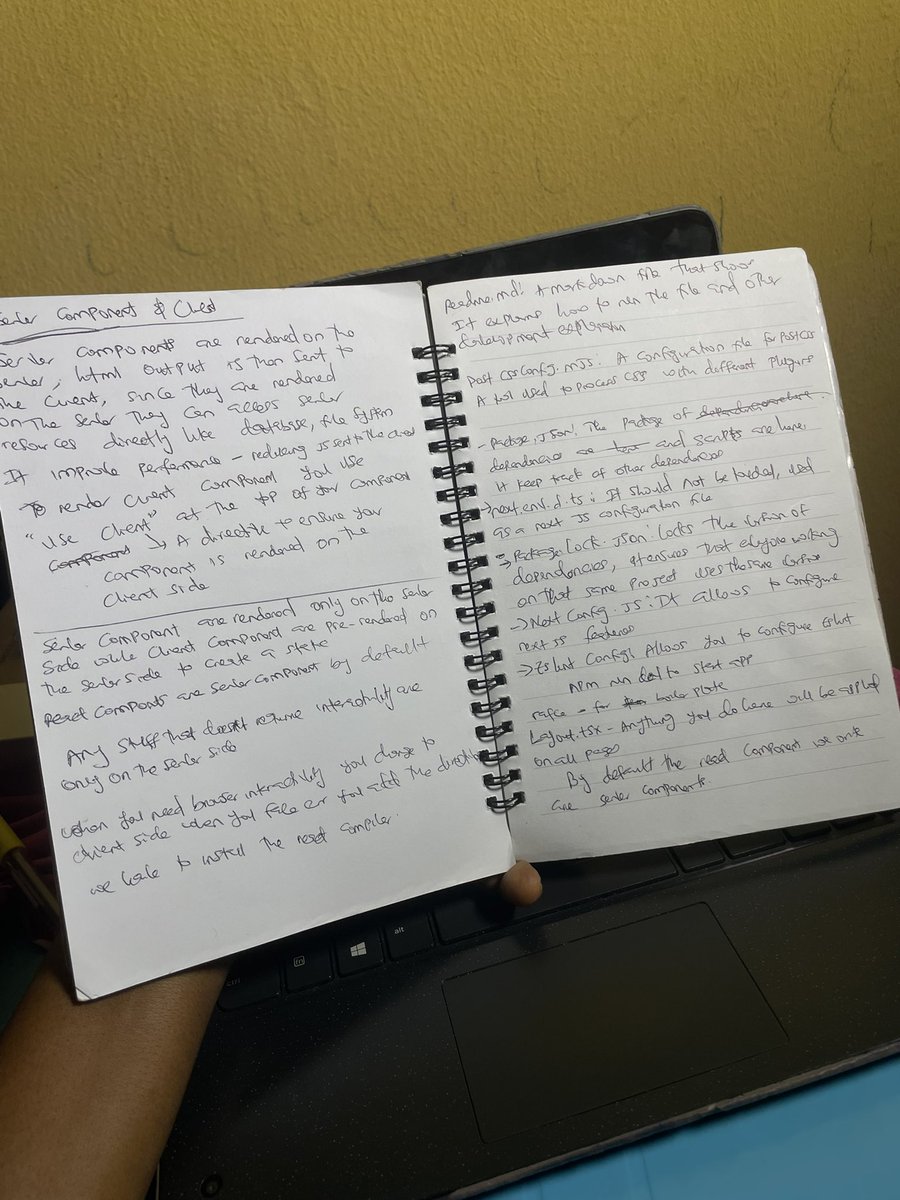 Server Component & Client
Server components are rendered on the
server, html output is then sent to
the client, since they are rendered
on the server they can access server
resources directly like database, file system
It improve performance - reducing js sent to the client
To render client component you use
"Use Client" at the top of your component
component → A directive to ensure you
component is rendered on the
client side
Server Component are rendered only on the server
side while client component are pre-rendered on
the server side to create a state
React components are server component by default
Any stuff that doesn't require interactivity are
only on the server side
when you need browser interactivity you change to
client side when you file or you add the directive
we have to install the react compiler.
Readme.md: A markdown file that show
It explains how to run the file and other
development explanation
Post css config.mjs: A configuration file for PostCSS
A tool used to process CSS with different plugins
- Package.json: The package of
dependencies and scripts are here.
it keep track of other dependencies
→ next.env.d.ts: It should not be loaded, used
as a next js configuration file
→ Package lock.json: locks the version of
dependencies, it ensures that everyone working
on that same project uses the same version
→ Next Config.js: It allows to configure
next js features
→ Eslint Config: Allows you to configure Eslint
npm run dev to start app
rafce - for boiler plate
Layout.tsx - Anything you do here will be applied
on all pages
By default the react component we write
are server components.
ctrl
fn
alt